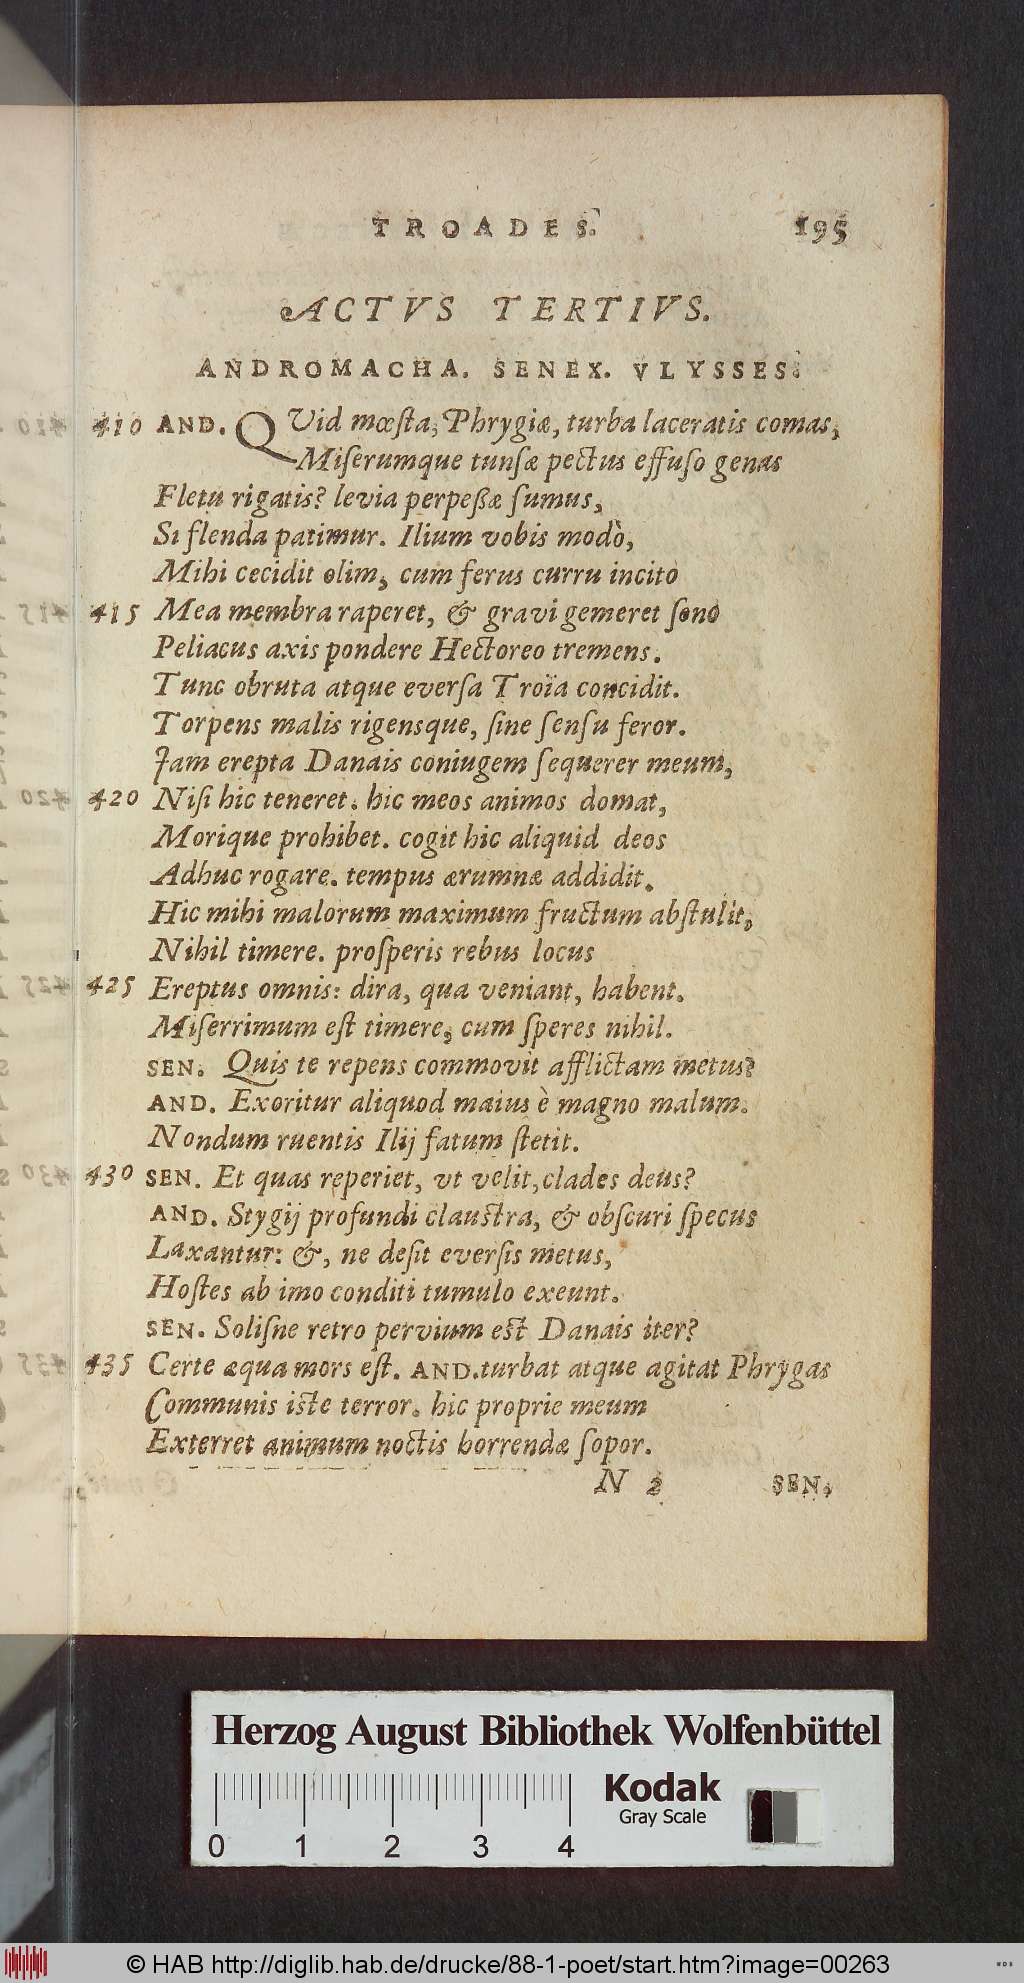 TROADES. 195
ACTVS TERTIVS.
ANDROMACHA. SENEX. VLYSSES.
410 AND. QVid mœſta, Phrygiæ, turba laceratis comas,
Miſerumque tunſæ pectus effuſo genas
Fletu rigatis? levia perpeßæ ſumus,
Si flenda patimur. Ilium vobis modò,
Mihi cecidit olim, cum ferus curru incito
415 Mea membra raperet, & gravi gemeret ſono
Peliacus axis pondere Hectoreo tremens.
Tunc obruta atque everſa Troïa concidit.
Torpens malis rigensque, ſine ſenſu feror.
Jam erepta Danais coniugem ſequerer meum,
420 Niſi hic teneret. hic meos animos domat,
Morique prohibet. cogit hic aliquid deos
Adhuc rogare. tempus ærumnæ addidit.
Hic mihi malorum maximum fructum abſtulit,
Nihil timere. proſperis rebus locus
425 Ereptus omnis: dira, qua veniant, habent.
Miſerrimum eſt timere, cum ſperes nihil.
SEN. Quis te repens commovit afflictam metus?
AND. Exoritur aliquod maius è magno malum.
Nondum ruentis Ilij fatum ſtetit.
430 SEN. Et quas reperiet, vt velit, clades deus?
AND. Stygij profundi clauſtra, & obſcuri ſpecus
Laxantur: &, ne deſit everſis metus,
Hoſtes ab imo conditi tumulo exeunt.
SEN. Soliſne retro pervium eſt Danais iter?
435 Certe æqua mors eſt. AND. turbat atque agitat Phrygas
Communis iſte terror. hic proprie meum
Exterret animum noctis horrendæ ſopor.
N 2 SEN.
Herzog August Bibliothek Wolfenbüttel
Kodak
Gray Scale
0 1 2 3 4
© HAB http://diglib.hab.de/drucke/88-1-poet/start.htm?image=00263